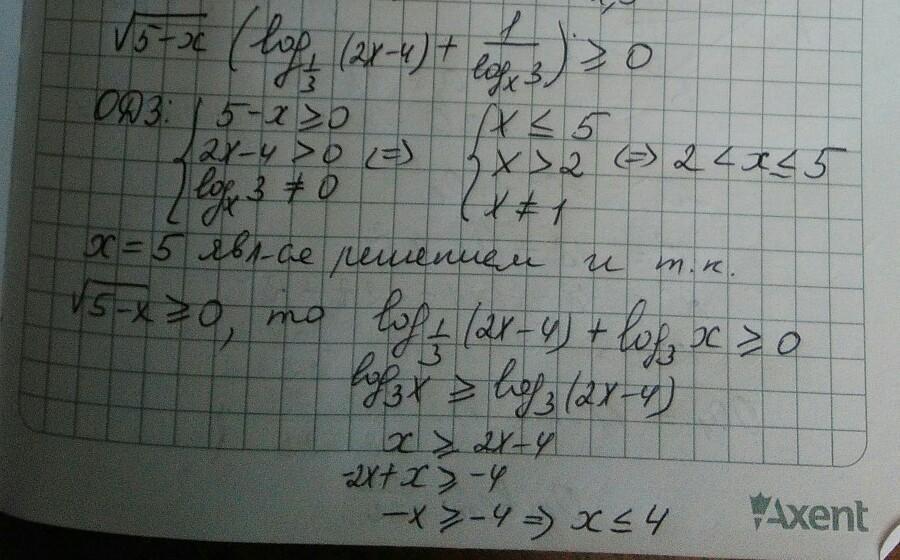 √5-x (log_1/3 (2x-4) + 1/log_x 3) ≥ 0
ОДЗ: { 5-x ≥ 0 { x ≤ 5
2x-4 > 0 (=) x > 2 (=) 2 < x ≤ 5
log_x 3 ≠ 0 x ≠ 1
x = 5 явл-ся решением и т.к.
√5-x ≥ 0, то log_1/3 (2x-4) + log_3 x ≥ 0
log_3 x ≥ log_3 (2x-4)
x ≥ 2x-4
-2x+x ≥ -4
-x ≥ -4 => x ≤ 4
Axent